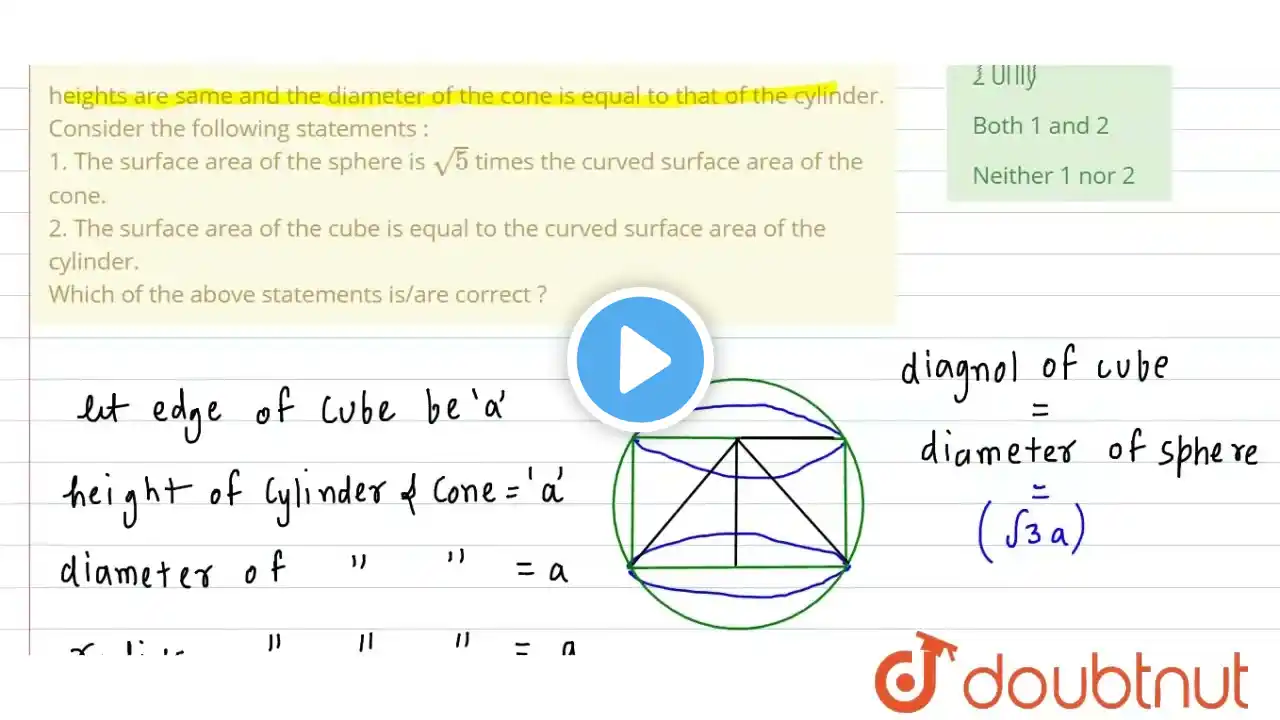 heights are same and the diameter of the cone is equal to that of the cylinder.
Consider the following statements :
1. The surface area of the sphere is √5 times the curved surface area of the
cone.
2. The surface area of the cube is equal to the curved surface area of the
cylinder.
Which of the above statements is/are correct ?
2 only
Both 1 and 2
Neither 1 nor 2
let edge of cube be 'a'
height of cylinder & cone = 'a'
diameter of " " = a
" " " = a
diagnol of cube
=
diameter of sphere
=
(√3 a)
doubtnut